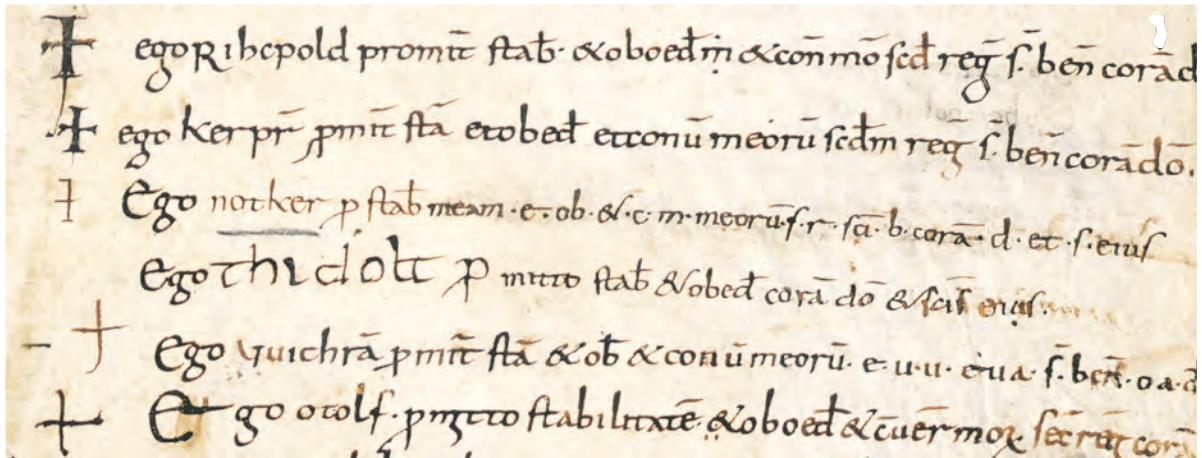 ego Rihcpold promit̄ stab̄· &oboed̄ m̄ &con̄ mō scd̄ reḡ s̄· ben̄ corā d
ego kerpr̄ ꝑmit̄ stā et obed̄ et conū meorū scd̄m reḡ s̄· ben̄ corā dō.
Ego notker ꝑ stab̄ meam · e · ob · & · c · m · meorū · s · r · sc̄i · b · corā · d · et · s · eius
Ego thidolt ꝓ mitto stab̄ &obed̄ corā dō &sc̄is eius.
Ego Vuichrā ꝑmit̄ stā &ob̄ &conū meorū · e · u · u · e · u a · s̄ · ben̄ · o a · d
Ego otolf · ꝑmitto stabilitatē &oboed̄ &c̄uer̄ moꝝ sec̄ reg̅ corā